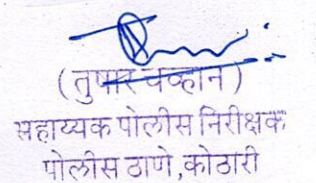 (तुषार चव्हान)
सहाय्यक पोलीस निरीक्षक
पोलीस ठाणे,कोठारी